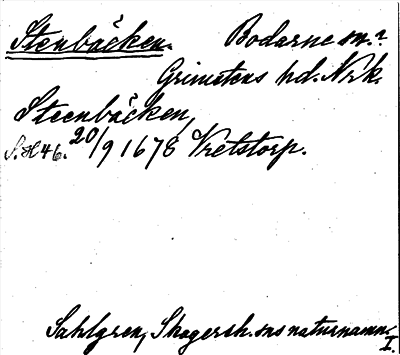 Stenbäcken. Bodarne sn.?
Grimstens hd. Nrk.
Steenbäcken,
S.H 46. 20/9 1678 Vretstorp.
Sahlgren, Skagersh. sns naturnamn.
I.